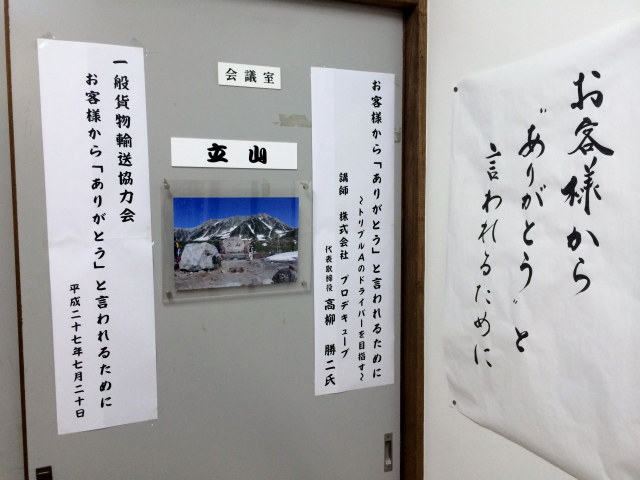 会議室
立山
お客様から「ありがとう」と言われるために
～トリプルAのドライバーを目指す～
講師 株式会社 プロデキューブ
代表取締役 高柳 勝二氏
一般貨物輸送協力会
お客様から「ありがとう」と言われるために
平成二十七年七月二十日
お客様から
"ありがとう"と
言われるために